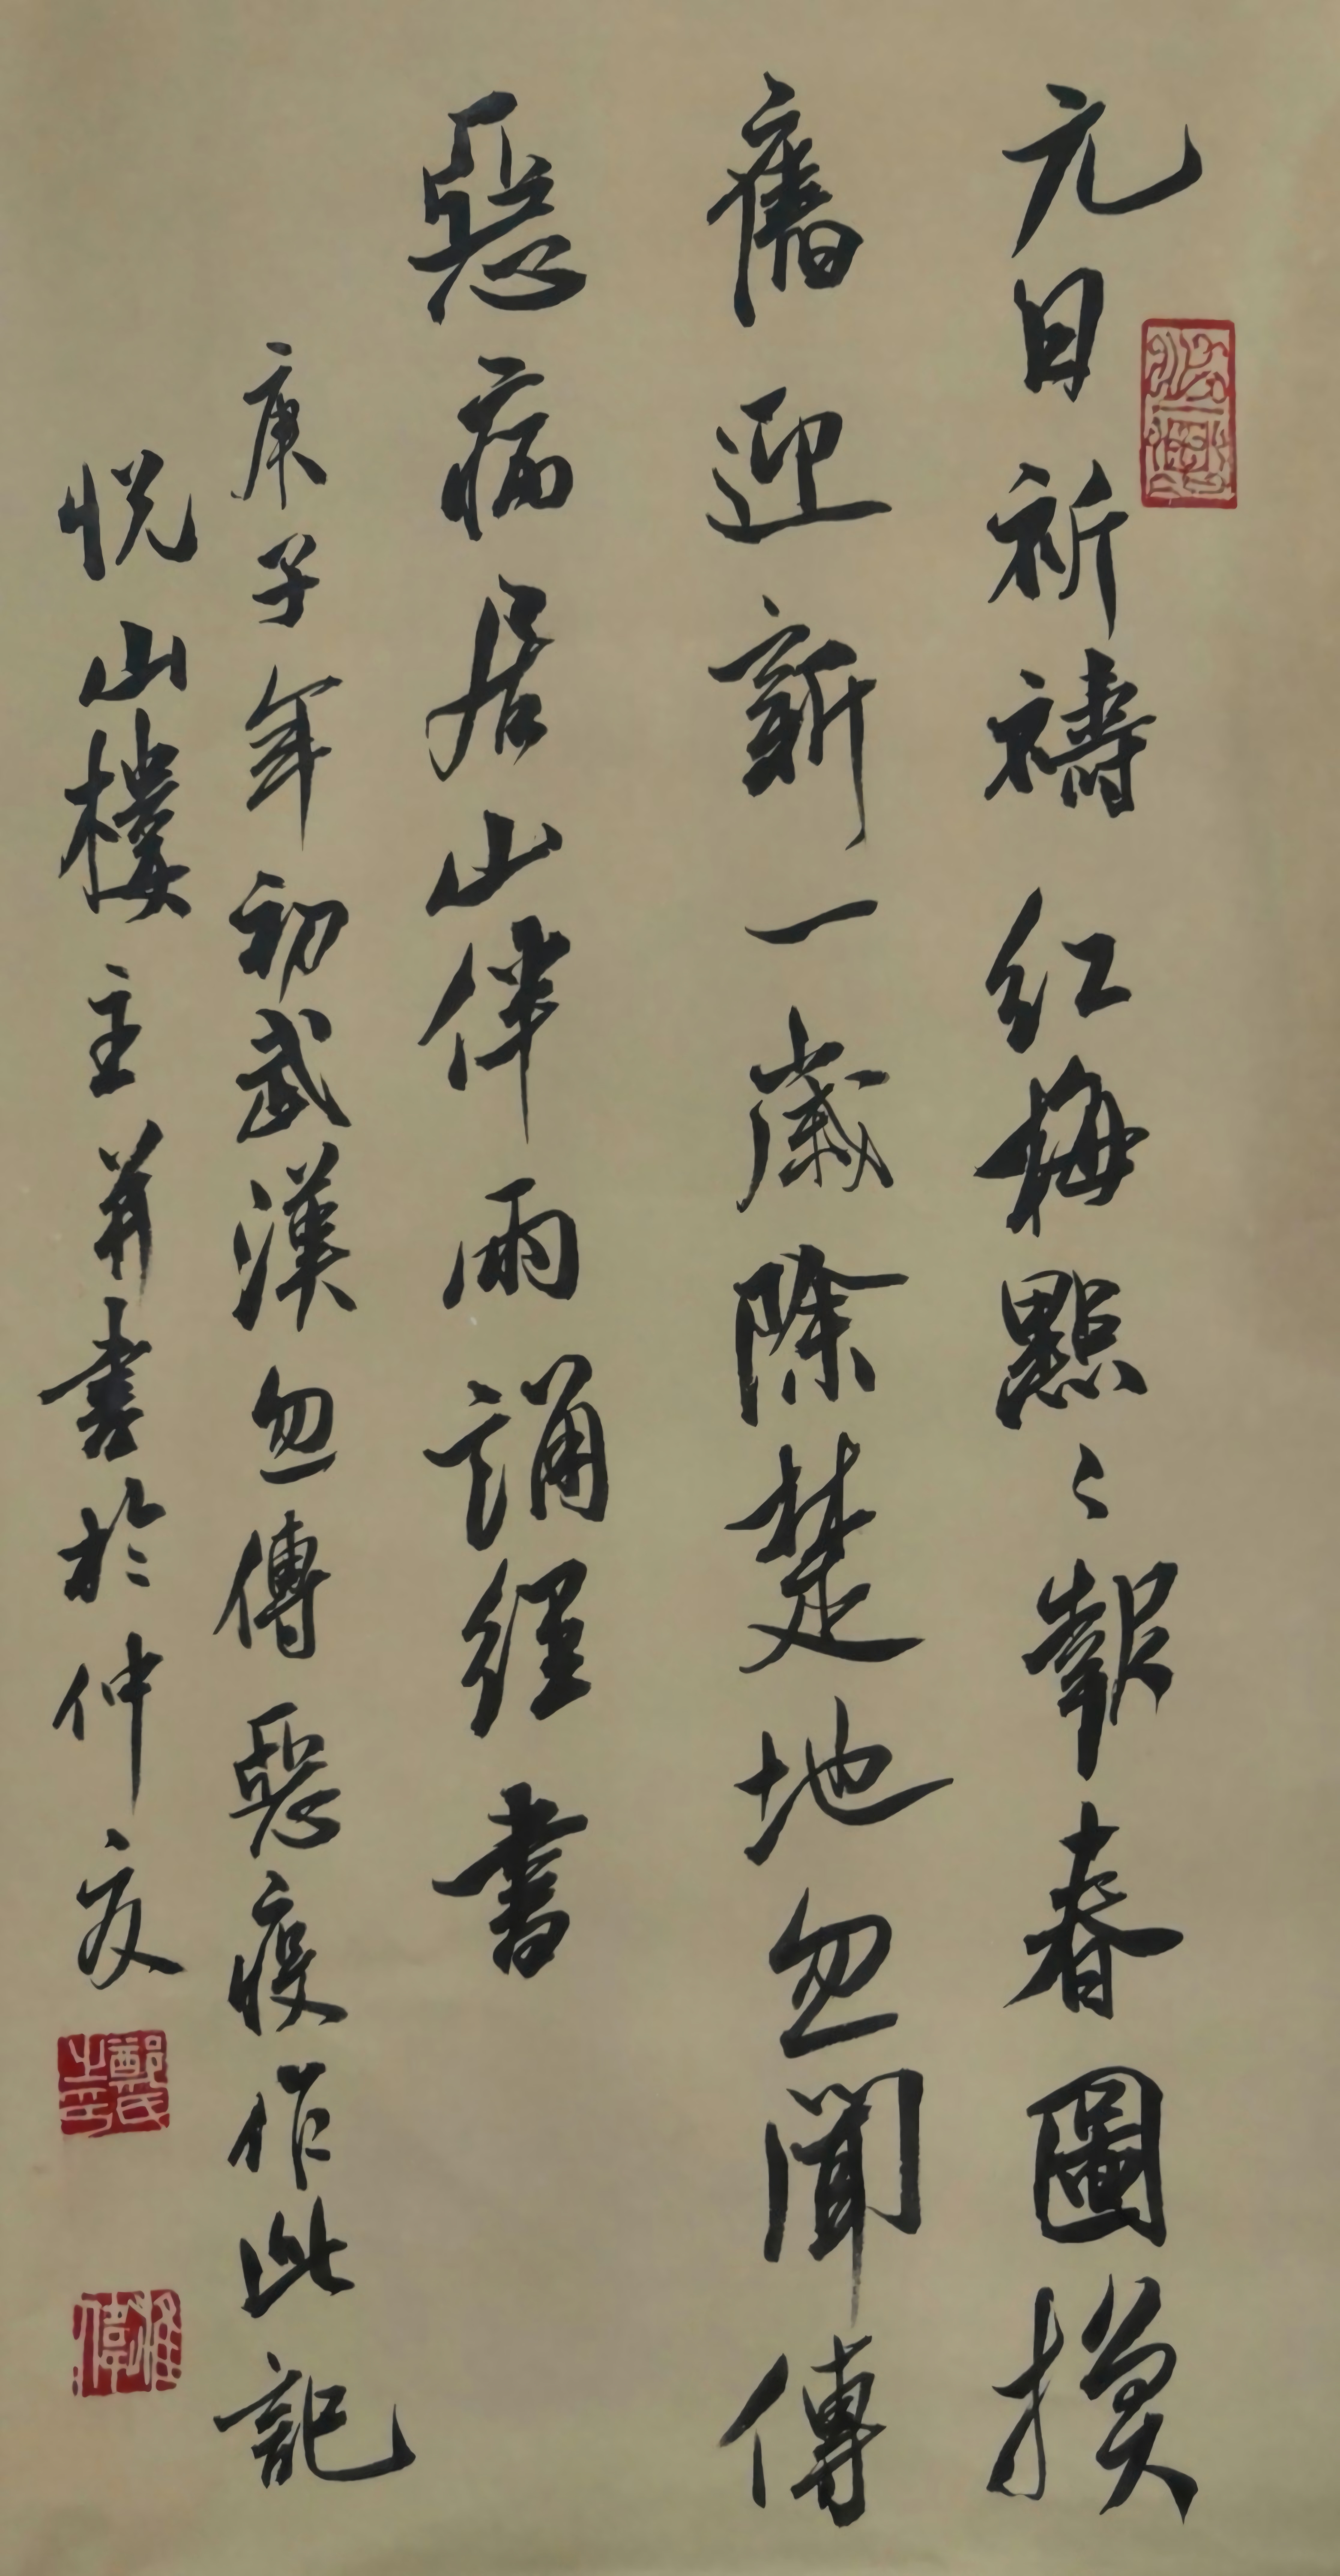 元日祈禱紅梅點〻報春圖換
舊迎新一歲除楚地忽聞傳
惡病居山伴雨誦經書
庚子年初武漢忽傳惡疫作此記
悅山樓主并書於仲夏
鄭氏之印